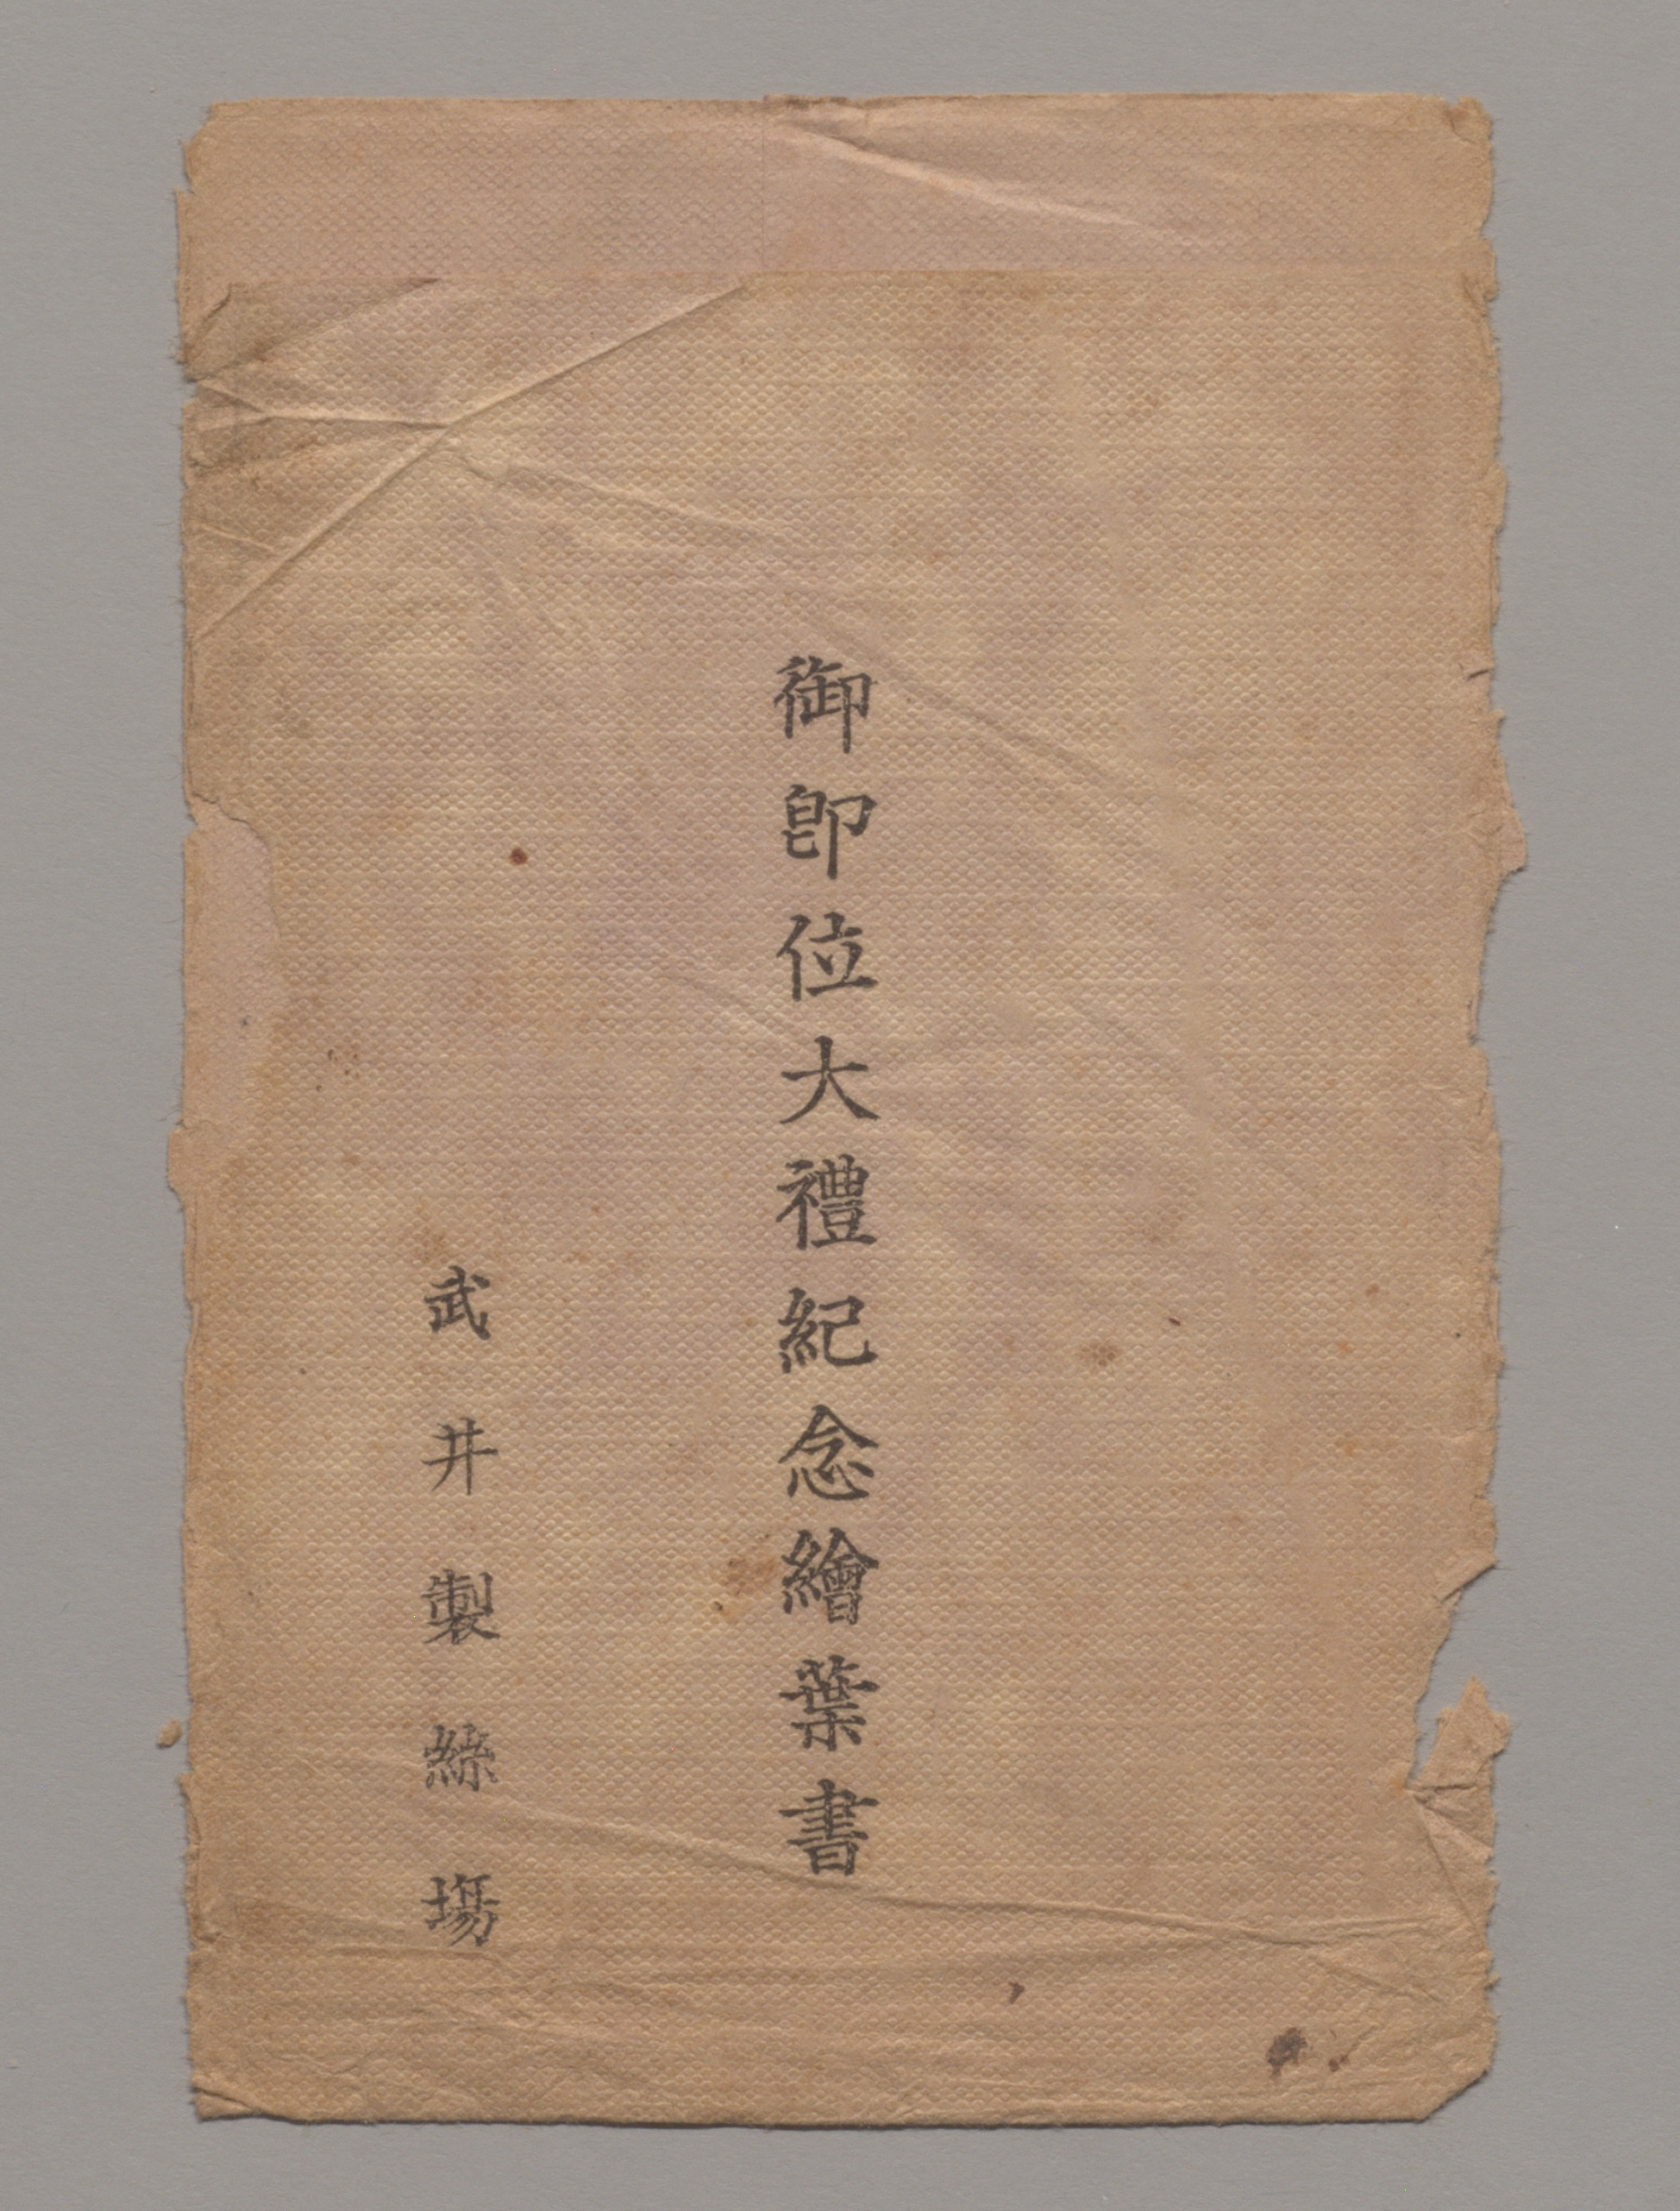 御即位大禮紀念繪葉書
武井製絲塲